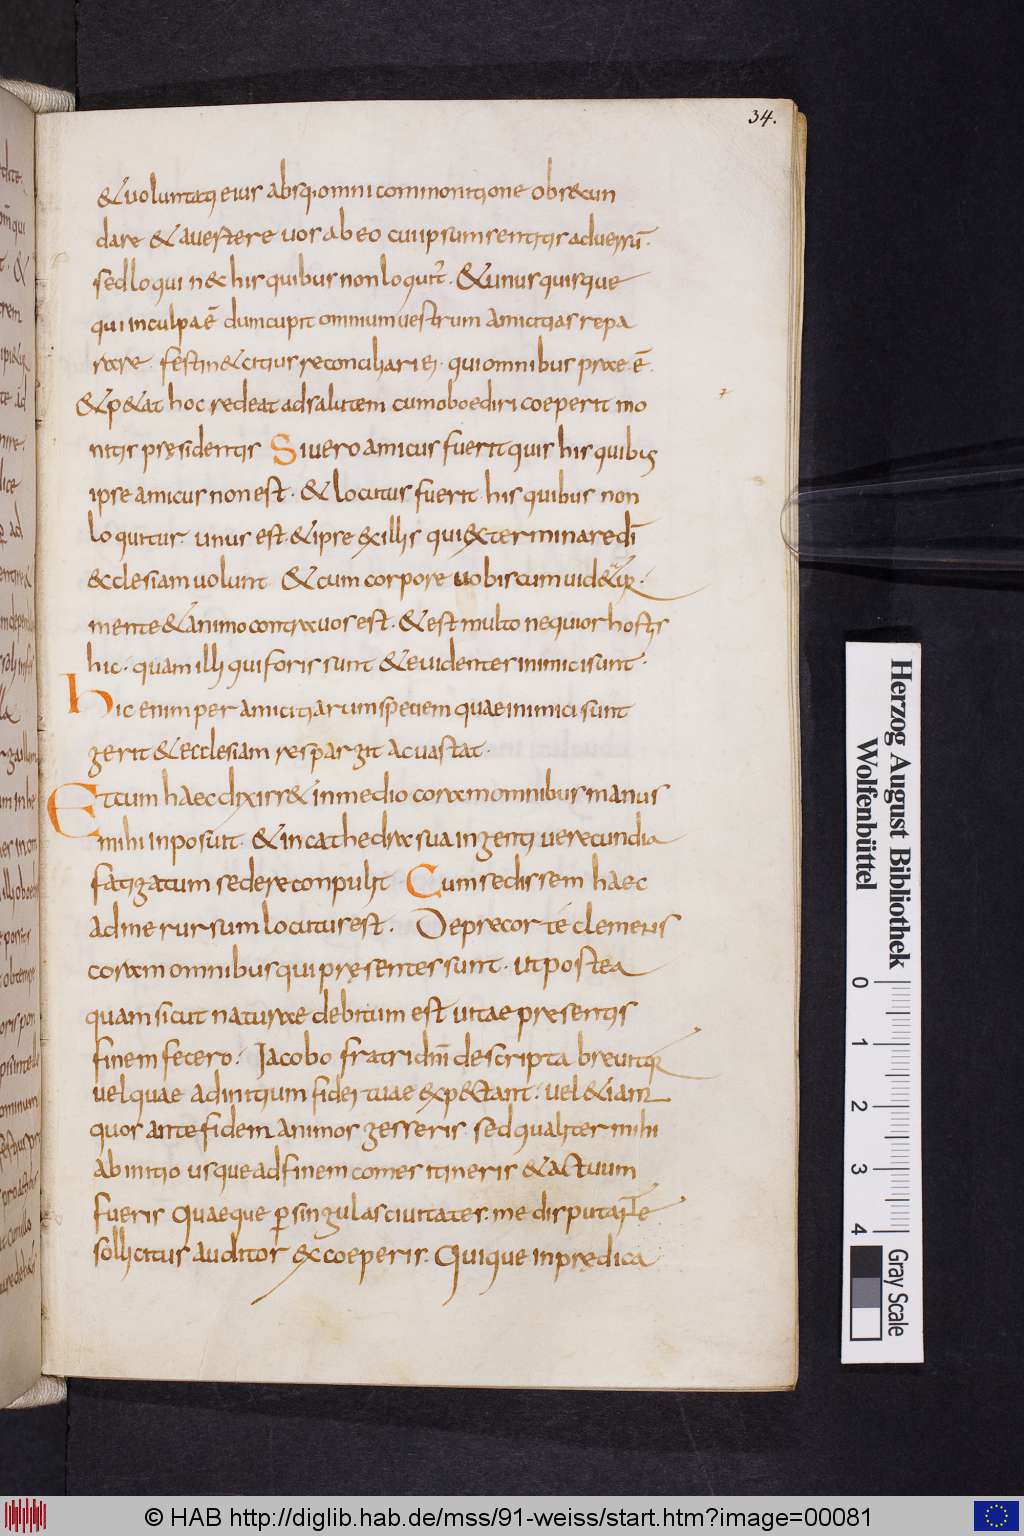 34.
& voluntati eius absq; omni commonitione obsecun
dare & avertere vos ab eo cui ipsum sentitis adversū.
sed loqui n& his quibus non loquit͛. & unus quisque
qui in culpa ē dum cupit omnium vestrum amicitias repa
rare. festin& citius reconciliari ei. qui omnibus prae ē.
& p& at hoc redeat ad salutem cum oboediri coeperit mo
nitis pręsidentis Si vero amicus fuerit quis his quibus
ipse amicus non est. & locutus fuerit his quibus non
loquitur. unus est & ipse ex illis qui exterminare dī
ecclesiam volunt & cum corpore vobiscum videatur.
mente & animo contra vos est. & est multo nequior hostis
hic. quam illi qui foris sunt & evidenter inimici sunt.
hic enim per amicitiarum speciem quae inimici sunt
gerit & ecclesiam respargit ac vastat.
Et cum haec dixiss& in medio coram omnibus manus
mihi inposuit. & in cathedra sua ingenti verecundia
fatigatum sedere conpulit. Cum sedissem haec
ad me rursum locutus est. Deprecor te clemens
coram omnibus qui pręsentes sunt. ut postea
quam sicut naturae debitum est vitae presentis
finem fecero. Jacobo fratri dn̄i descripta breviter
vel quae ad initium fidei tuae exp&tant. vel &iam
quos ante fidem animos gesseris. sed qualiter mihi
ab initio usque ad finem comes itineris & actuum
fueris Quaeque ꝑ singulas civitates me disputante
sollicitus auditor exceperis. Quique in prędica
Herzog August Bibliothek
Wolfenbüttel
0 1 2 3 4
Gray Scale
© HAB http://diglib.hab.de/mss/91-weiss/start.htm?image=00081